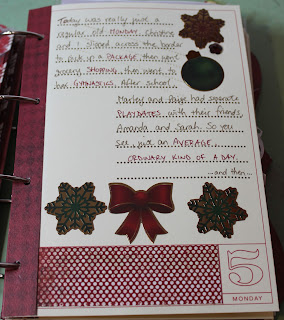 Today was really just a
regular old MONDAY. Christine
and I slipped across the border
to pick up a PACKAGE then went
grocery SHOPPING then went to
her GYMNASTICS. After school,
Marley and Paige had separate
PLAYDATES with their friends,
Amanda and Sarah. So you
see, just an AVERAGE
ORDINARY KIND OF A DAY
...and then...
5
MONDAY